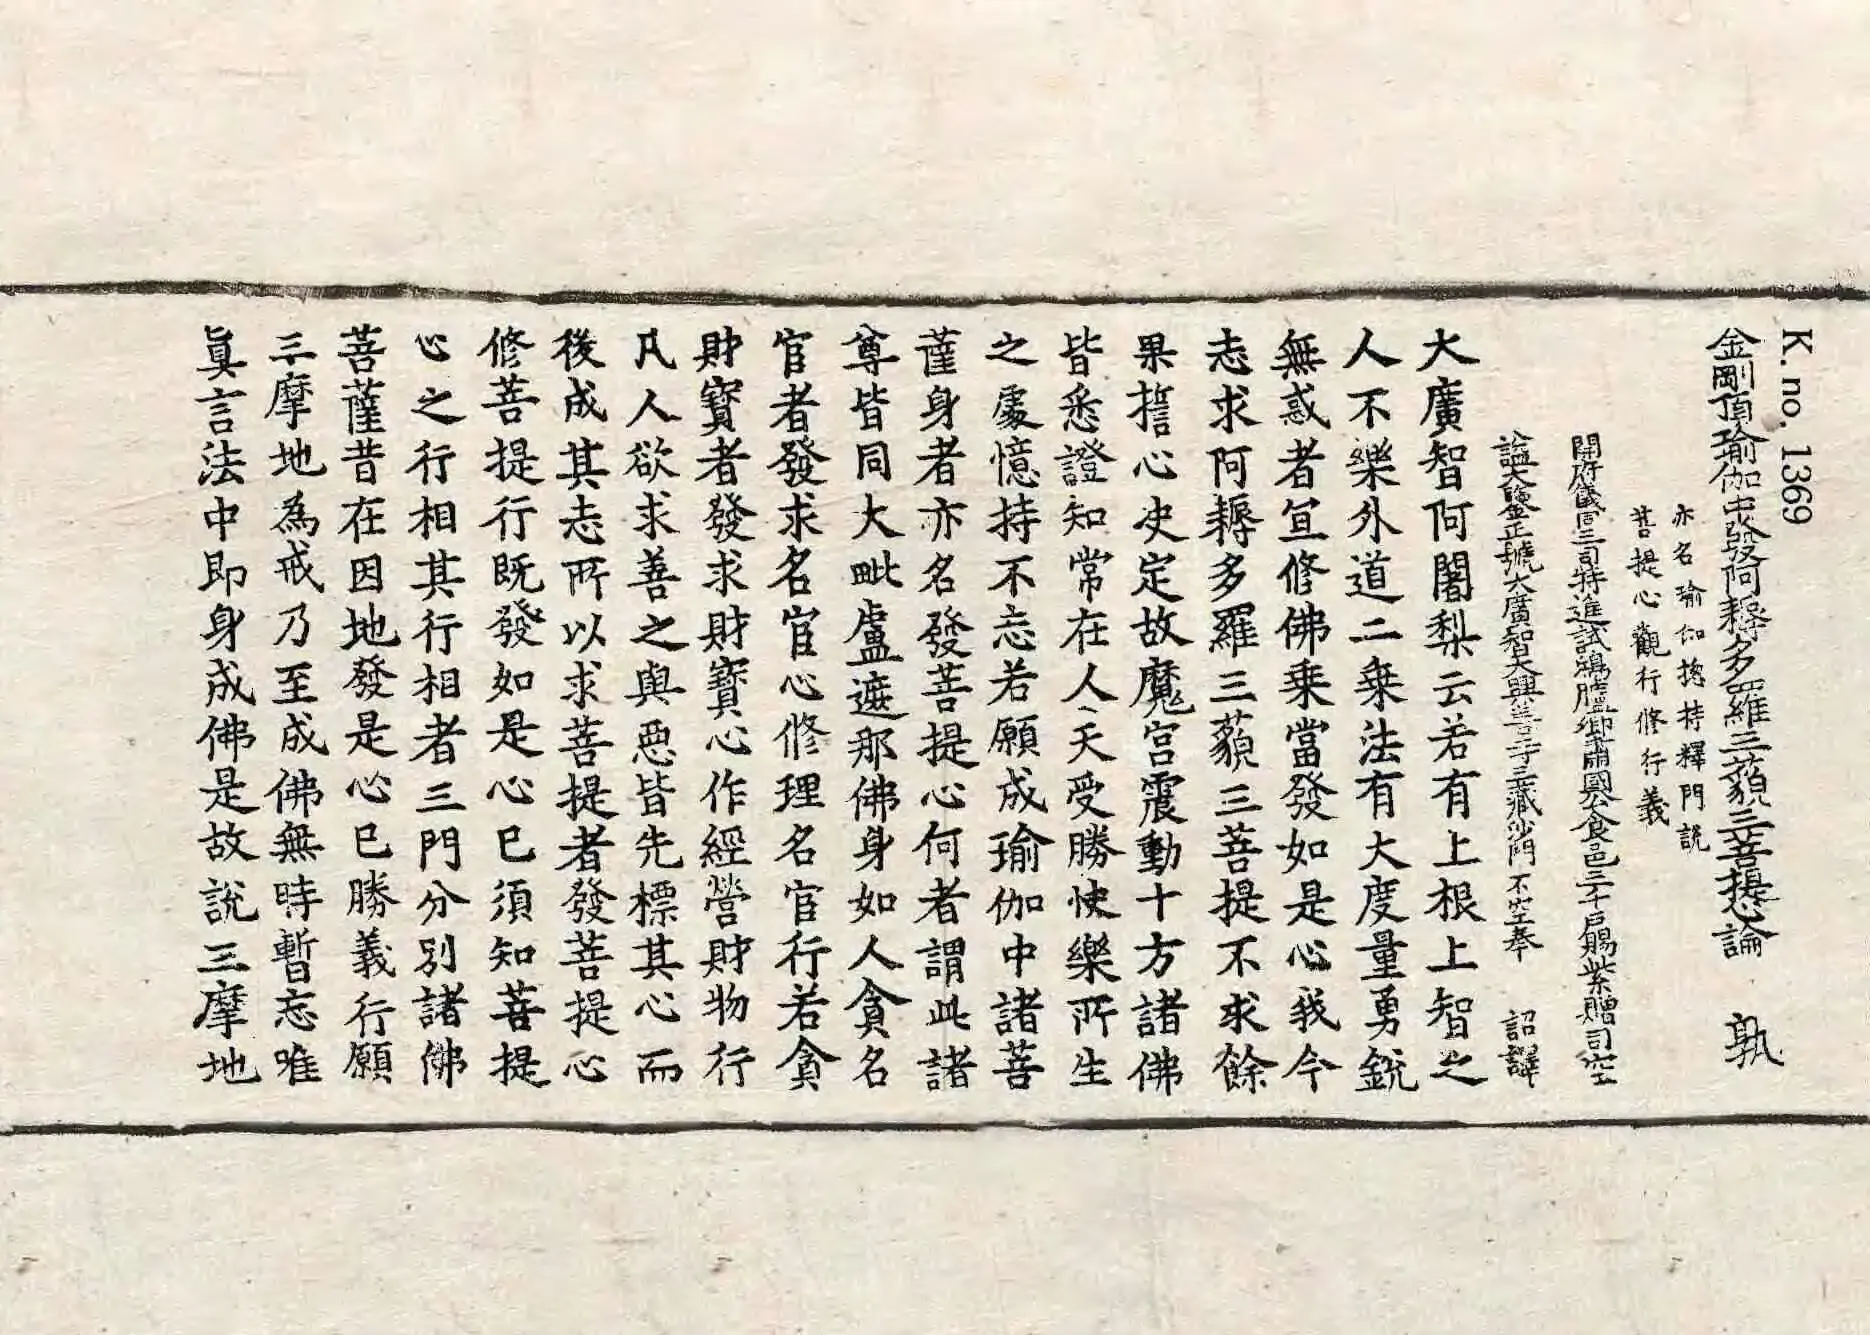 K. no. 1369
金剛頂瑜伽中發阿耨多羅三藐三菩提心論 孰
亦名瑜伽揔持釋門說
菩提心觀行修行義
開府儀同三司特進試鴻臚卿肅國公食邑三千戶賜紫贈司空
謚大鑒正號大廣智大興善寺三藏沙門不空奉 詔譯
大廣智阿闍梨云若有上根上智之
人不樂外道二乗法有大度量勇銳
無惑者宜修佛乗當發如是心我今
志求阿耨多羅三藐三菩提不求餘
果誓心决定故魔宫震動十方諸佛
皆悉證知常在人天受勝快樂所生
之處憶持不忘若願成瑜伽中諸菩
薩身者亦名發菩提心何者謂此諸
尊皆同大毗盧遮那佛身如人貪名
官者發求名官心修理名官行若貪
財寶者發求財寶心作經營財物行
凡人欲求善之與惡皆先標其心而
後成其志所以求菩提者發菩提心
修菩提行既發如是心已須知菩提
心之行相其行相者三門分別諸佛
菩薩昔在因地發是心已勝義行願
三摩地為戒乃至成佛無時暫忘唯
眞言法中即身成佛是故說三摩地